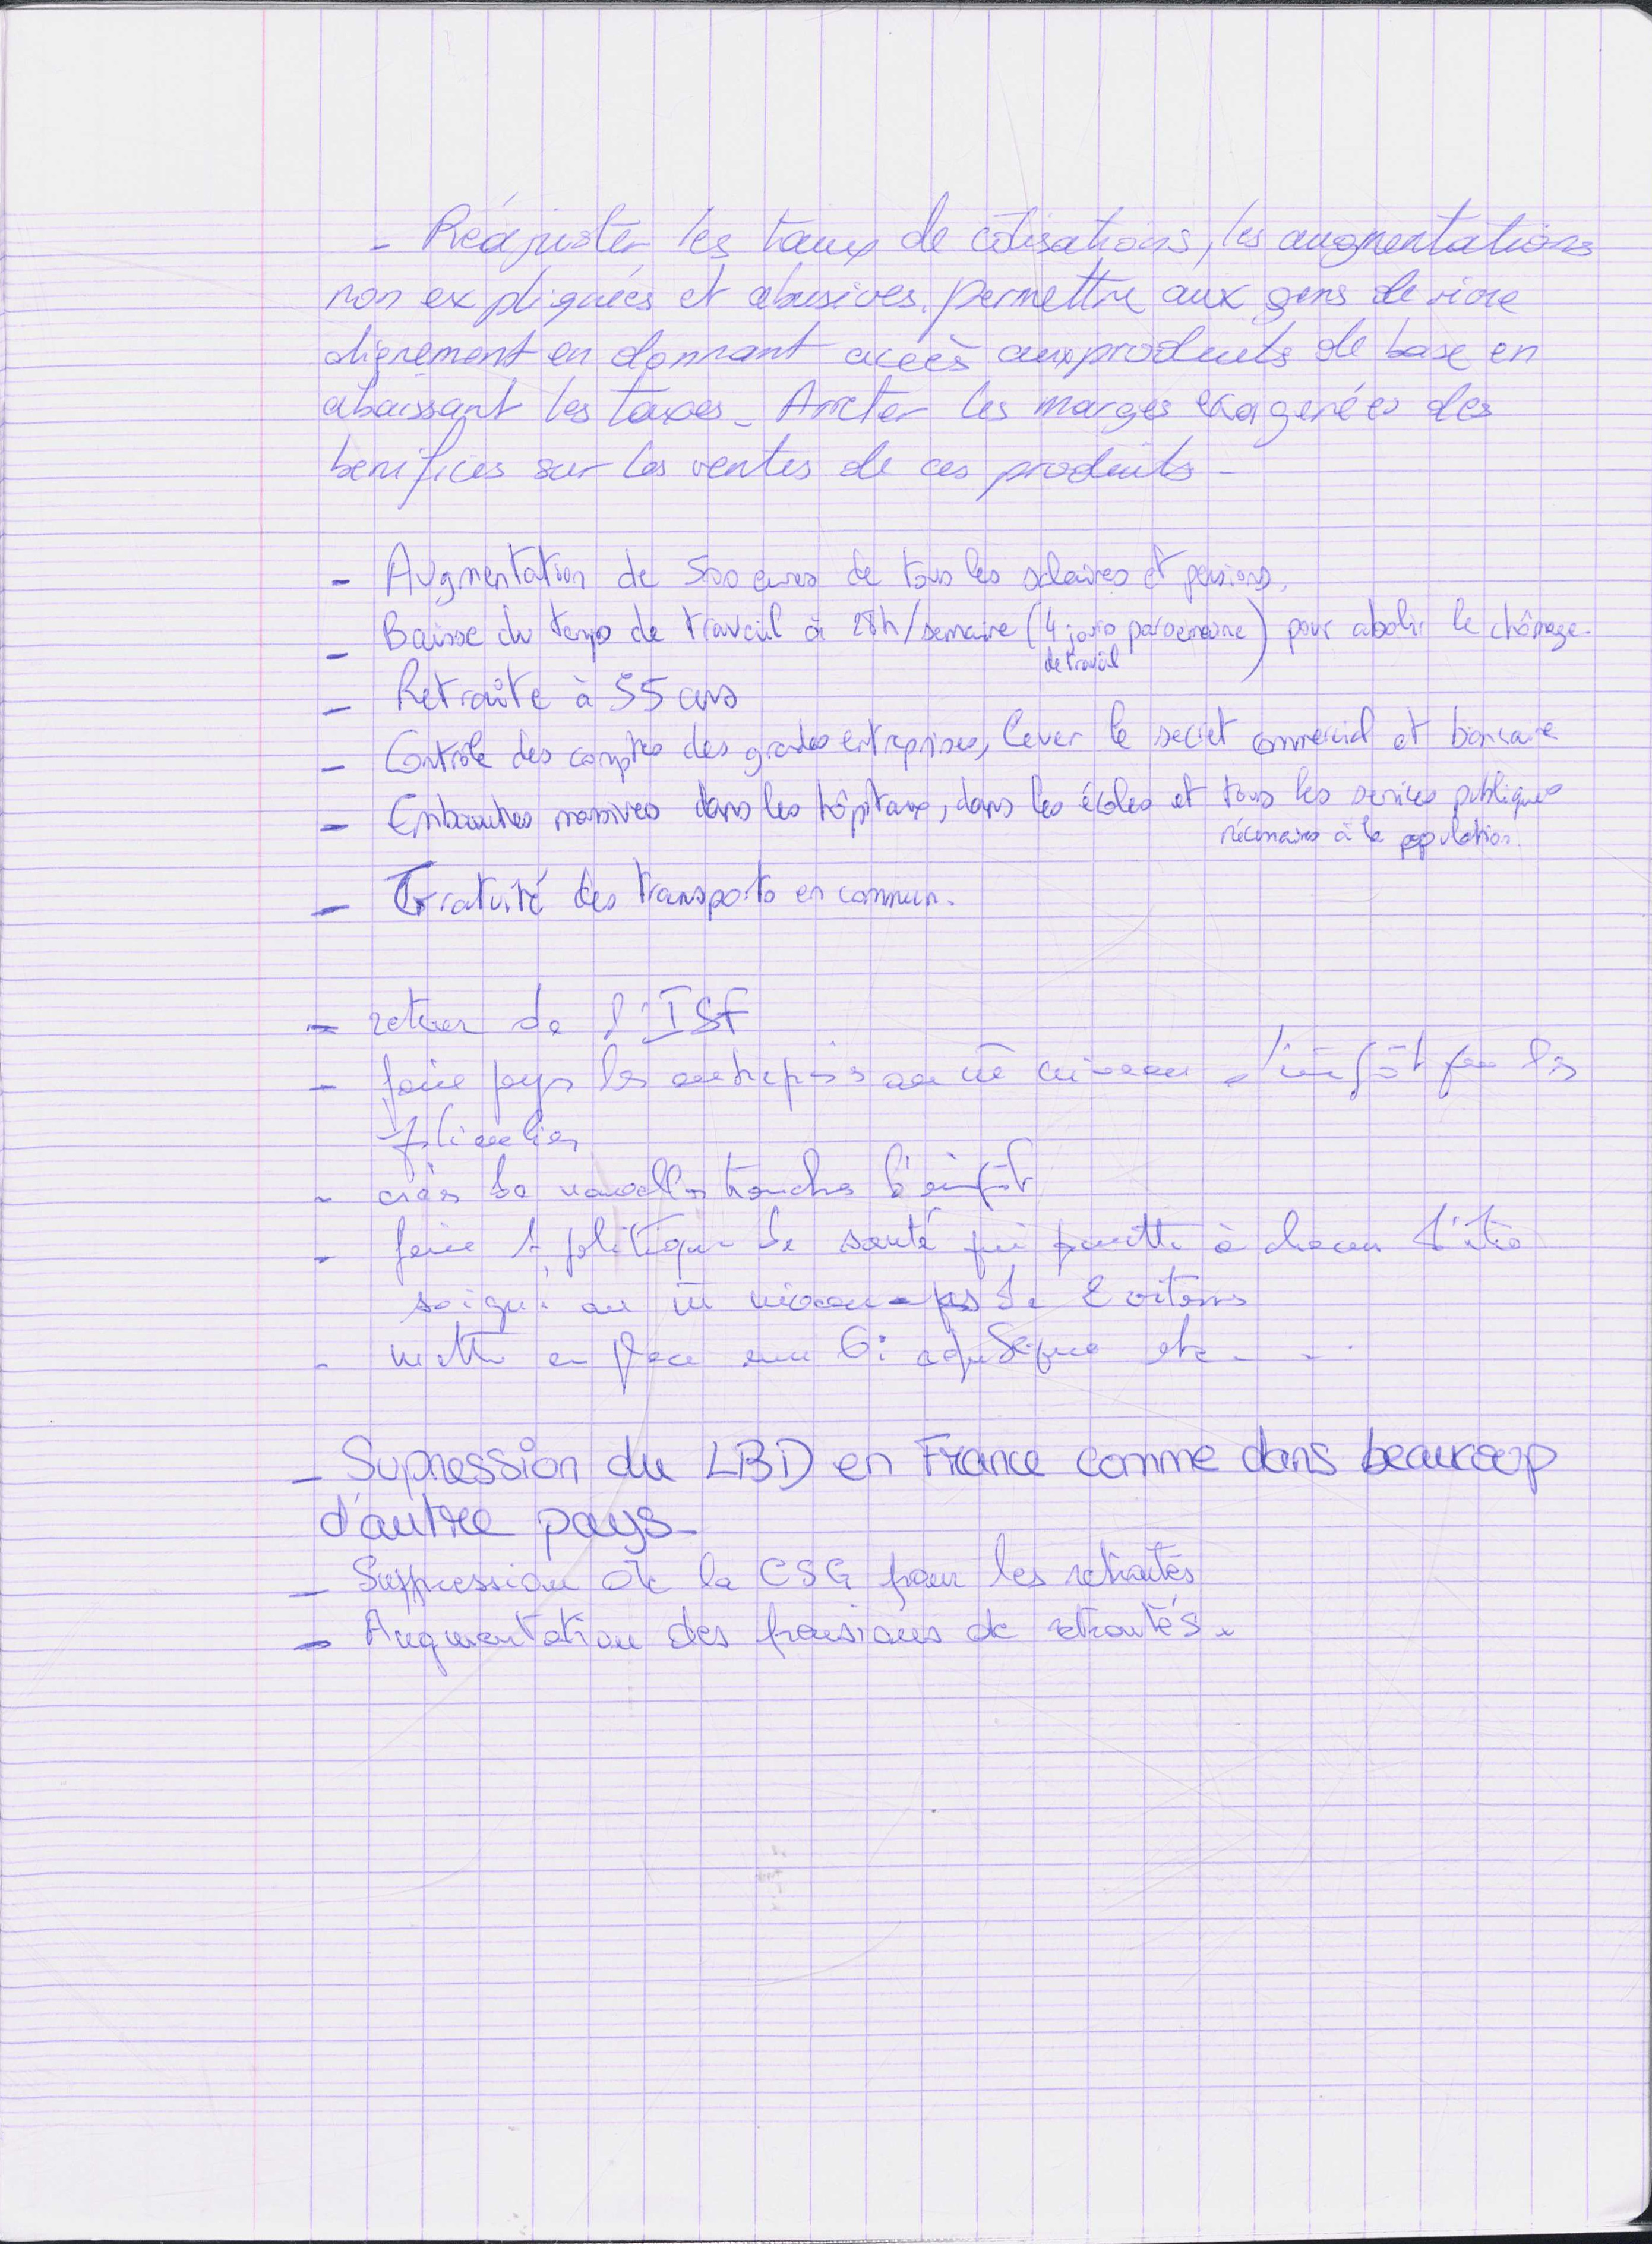 - Réajuster les taux de cotisations, les augmentations
non expliquées et abusives. permettre aux gens de vivre
dignement en donnant accès aux produits de base en
abaissant les taxes - Arreter les marges exagerées des
benifices sur les ventes de ces produits -
- Augmentation de 500 euros de tous les salaires et pensions.
- Baisse du temps de travail à 28h/semaine (4 jours par semaine) pour abolir le chômage.
de travail
- Retraite à 55 ans
- Contrôle des comptes des grandes entreprises, lever le secret commercial et bancaire
- Embauches massives dans les hôpitaux, dans les écoles et tous les services publiques
nécessaires à la population.
- Gratuité des transports en commun.
- retour de l'ISF
- faire payer les entreprises au m̄ niveau d'impôt que les
- créer de nouvelles tranches d'impôt
- faire 1 politique de santé qui permette à chacun d'être
soigné au m̄ niveau - pas de
- mettre en place une 6è république etc - -
- Supression du LBD en France comme dans beaucoup
d'autre pays -
- Suppression de la CSG pour les retraités
- Augmentation des pensions de retraités.